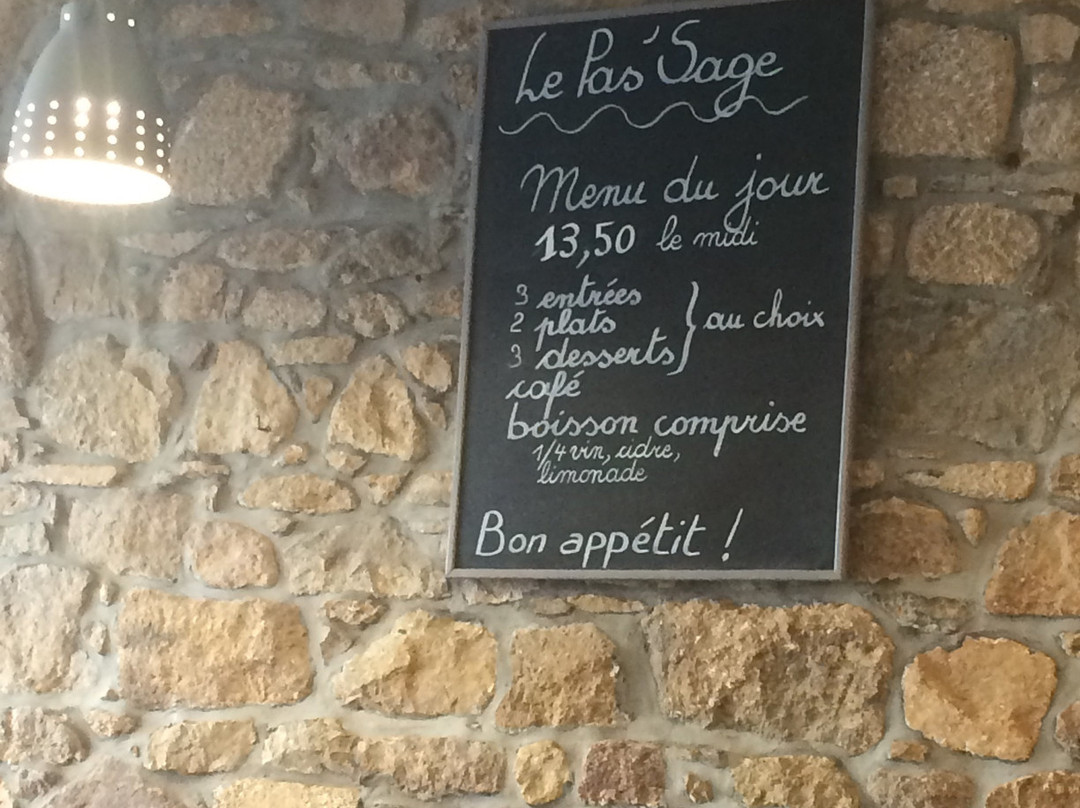 Le Pas'Sage
Menu du jour
13,50 le midi
3 entrées
2 plats
3 desserts } au choix
café
boisson comprise
1/4 vin, cidre,
limonade
Bon appétit !